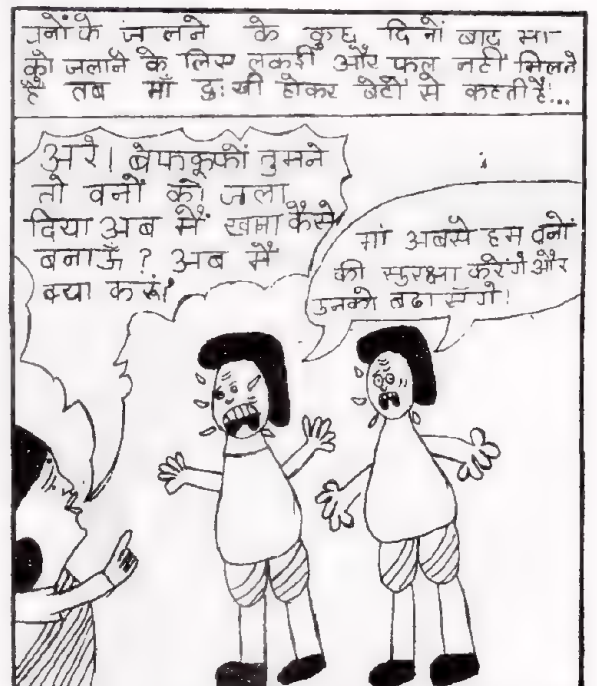 वनों के जलने के कुछ दिनों बाद मा
को जलाने के लिए लकरी और फल नहीं मिलते
हैं तब माँ दुःखी होकर बेटों से कहती है!...
अरे। बेफकूफों तुमने
तो वनों को जला
दिया अब मैं खामा कैसे
बनाऊँ? अब मैं
क्या करूं!
मां अबसे हम वनों
की सुरक्षा करेंगे और
उनको बढा सेंगे!